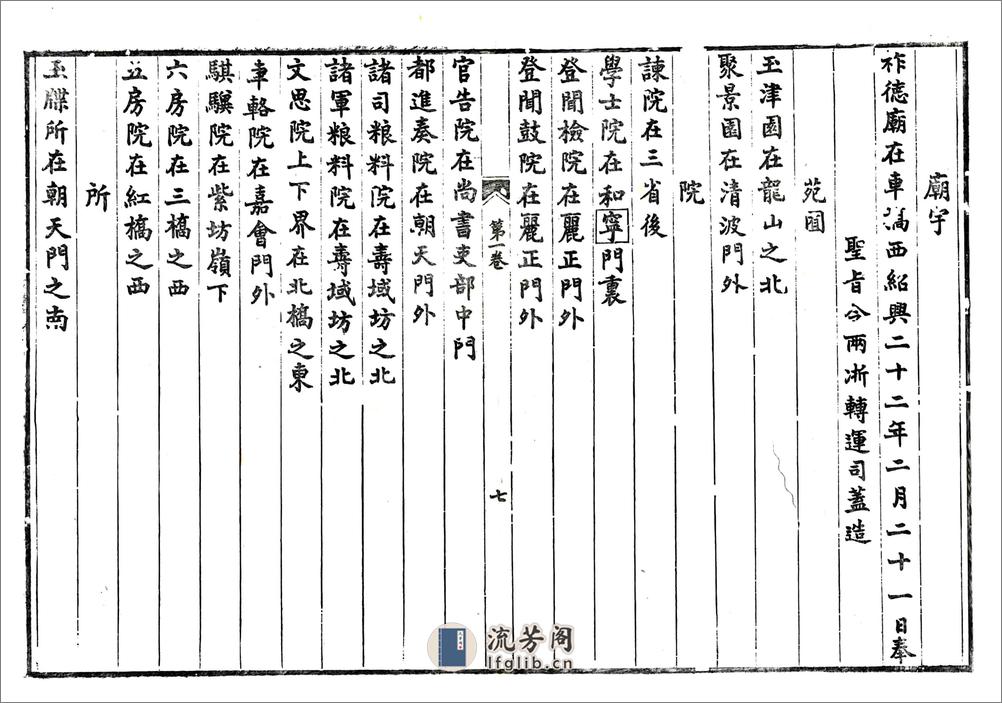 廟宇
祚德廟在車橋西紹興二十二年二月二十一日奉
聖旨令兩浙轉運司蓋造
苑囿
玉津園在龍山之北
聚景園在清波門外
院
諫院在三省後
學士院在和寧門裏
登聞檢院在麗正門外
登聞鼓院在麗正門外
第一卷
七
官告院在尚書吏部中門
都進奏院在朝天門外
諸司粮料院在壽域坊之北
諸軍粮料院在壽域坊之北
文思院上下界在北橋之東
車輅院在嘉會門外
騏驥院在紫坊嶺下
六房院在三橋之西
五房院在紅橋之西
所
玉牒所在朝天門之南
流芳阁
lfglib.cn